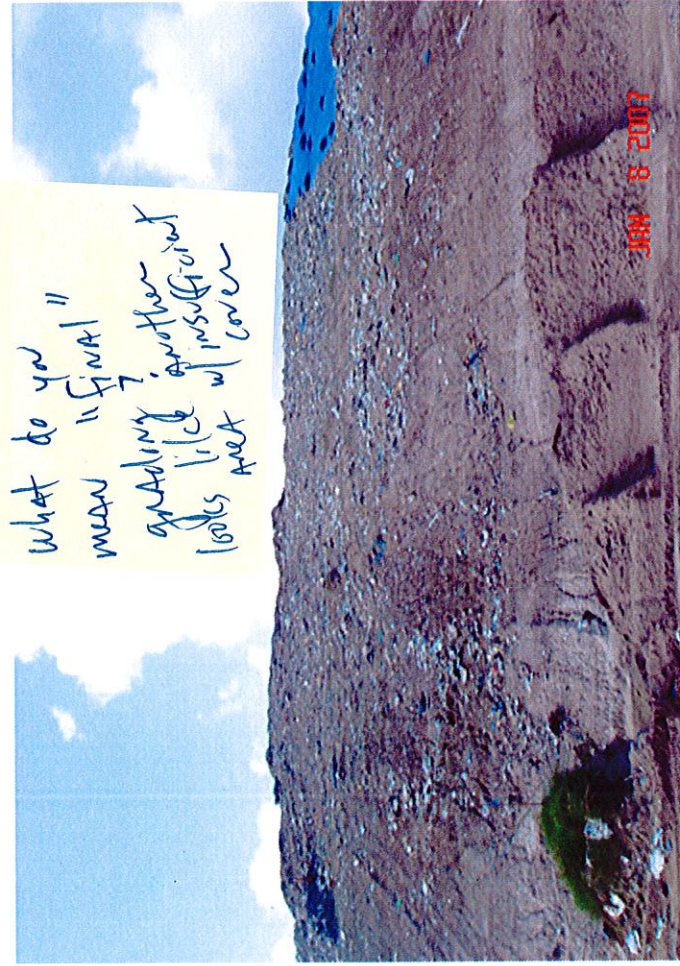 what do you
mean "final"
grading?
looks like another
area w/ insufficient
cover
JAN 8 2007